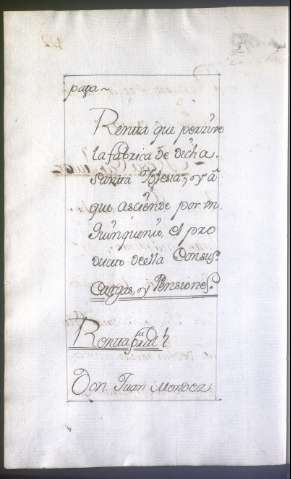 paga~
Renta que percive
la fabrica de dicha
Santa Yglesia, y â
que asciende por un
Quinquenio el pro
ducto de ella Consus
Cargas, y Pensiones.
Renta
Don Juan Mendoza